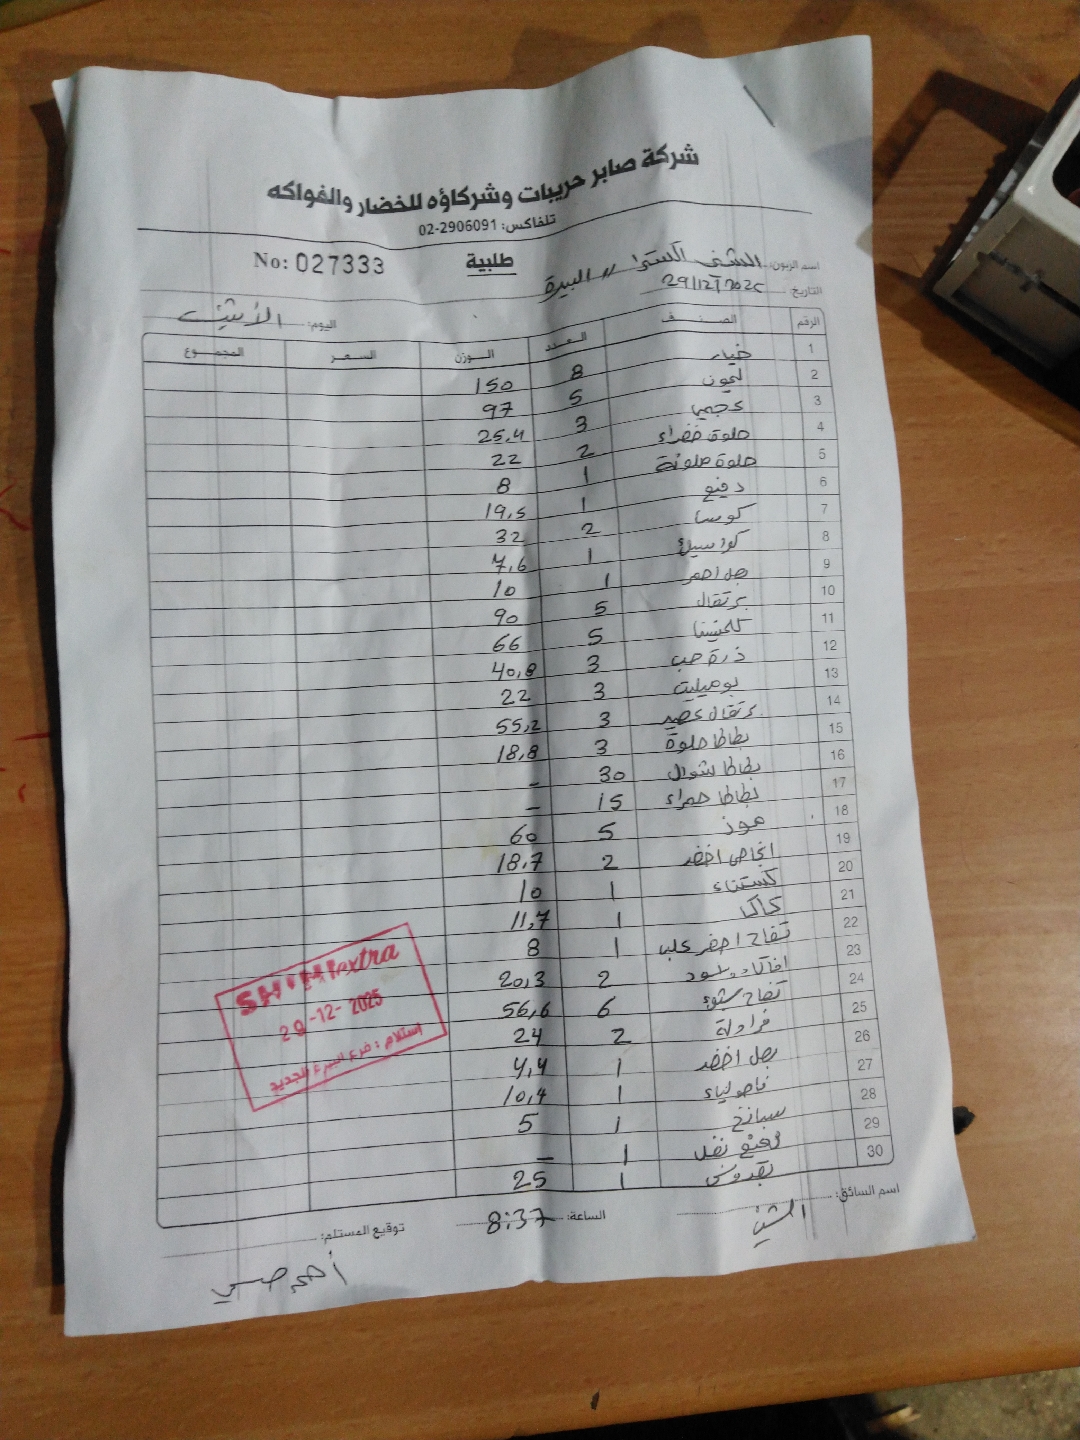 شركة صابر حريبات وشركاؤه للخضار والفواكه
تلفاكس: 02-2906091
No: 027333
طلبية
اسم الزبون: الشني اكسترا // البيرة
التاريخ: 29/12/2025
اليوم: الأثنين
الرقم الصنف العدد الوزن السعر المجموع
1 خيار 8 150
2 ليمون 5 97
3 عجمي 3 25,4
4 حلوة خضراء 2 22
5 حلوة ملونة 1 8
6 دفيع 1 19,5
7 كوسا 2 32
8 1 7,6
9 بصل احمر 1 10
10 برتقال 5 90
11 كلمنتينا 5 66
12 ذرة حب 3 40,8
13 بوميليت 3 22
14 برتقال عصير 3 55,2
15 بطاطا حلوة 3 18,8
16 بطاطا شوال 30 -
17 بطاطا حمراء 15 -
18 موز 5 60
19 انجاص اخضر 2 18,7
20 كستناء 1 10
21 كاكا 1 11,7
22 تفاح احمر علب 1 8
23 افاكادو اسود 2 20,3
24 تفاح 6 56,6
25 فراولة 2 24
26 بصل اخضر 1 4,4
27 فاصولياء 1 10,4
28 سبانخ 1 5
29 1 -
30 بقدونس 1 25
SHINIextra
29-12-2025
إستلام : فرع البيرة الجديد
اسم السائق: الشني
الساعة: 8:37
توقيع المستلم: